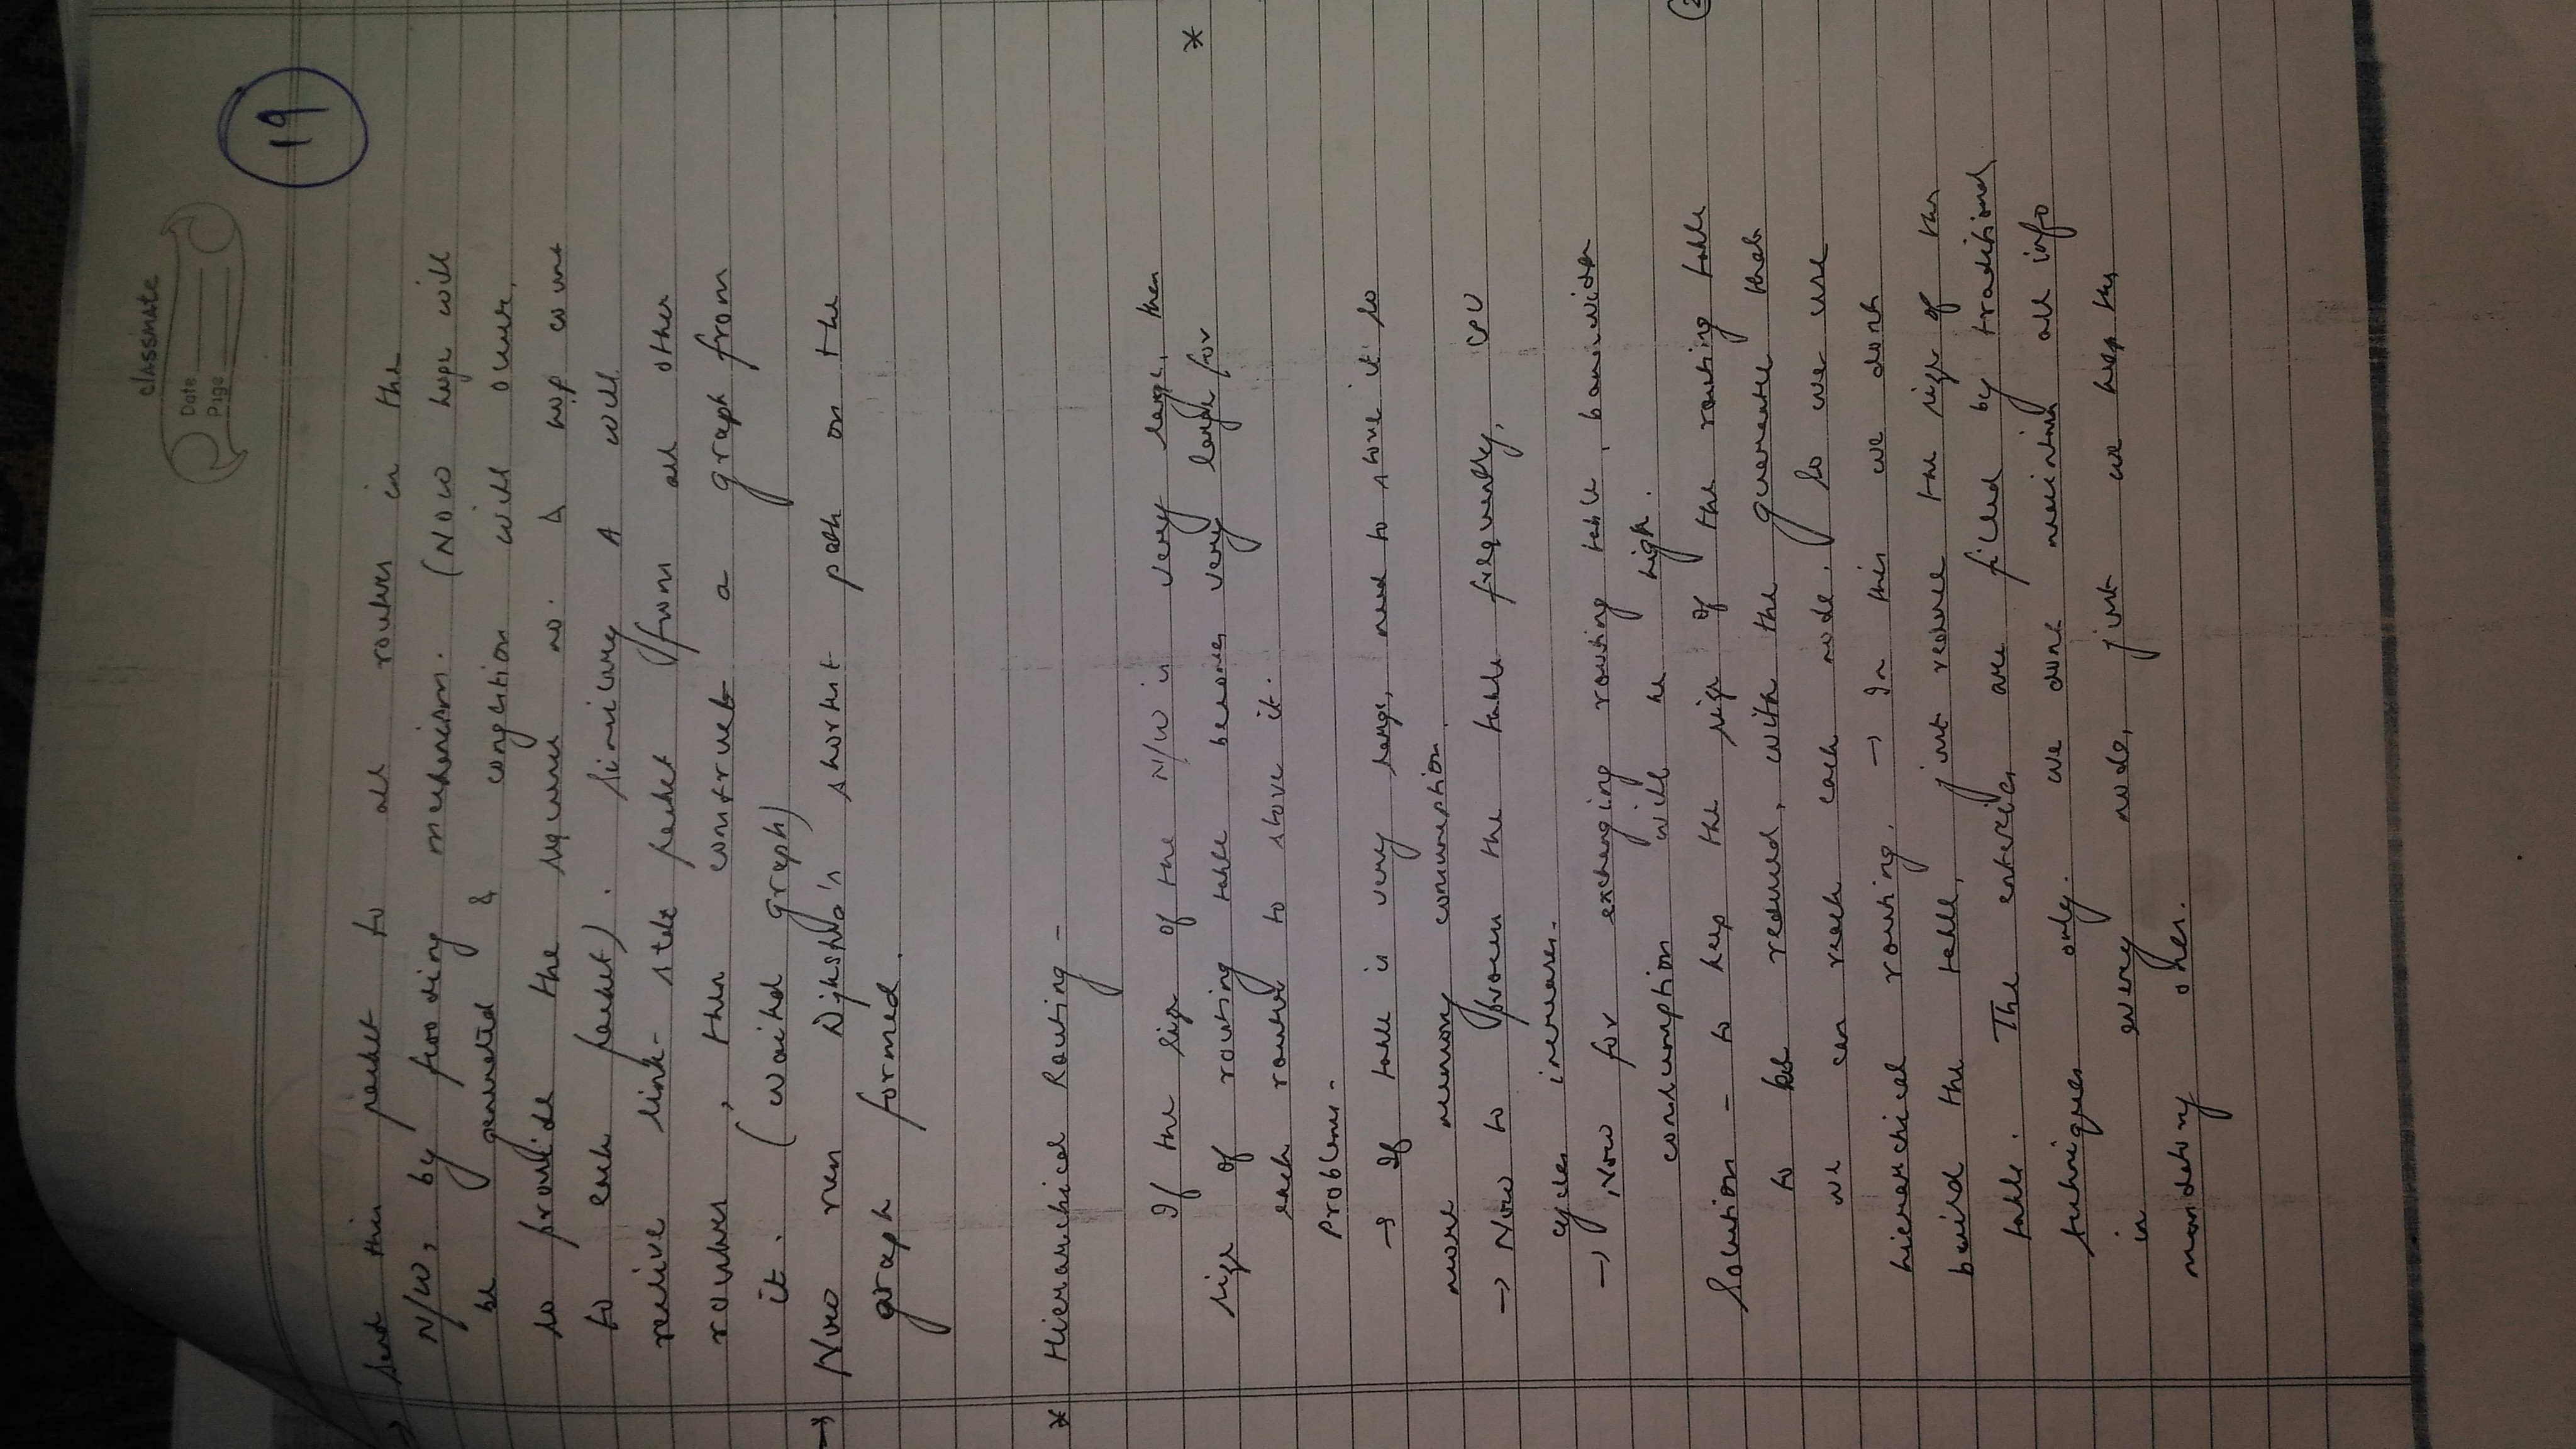 classmate
Date
Page
19
→ Send this packet to all routers in the
N/W, by flooding mechanism. (Now loops will
be generated & congestion will occur,
so provide the sequence no. & hop count
to each packet). Similarly A will
receive link-state packet from all other
routers, then construct a graph from
it. (waited graph)
→ Now run Dijkstra's shortest path on the
graph formed.
* Hierarchical Routing -
If the size of the N/W is very large, then
size of routing table becomes very large for
each router to store it.
*
Problems -
→ If table is very large, need to store it so
more memory consumption.
→ Now to process the table frequently, CPU
cycles increases.
→ Now for exchanging routing table, bandwidth
consumption will be high.
Solution - to keep the size of the routing table
to be reduced, with the guarantee that
we can reach each node. So we use
hierarchical routing. → In this we dont
build the table, just reduce the size of the
table. The enteries are filled by traditional
techniques only. we dont maintain all info
in every node, just we keep the
mandatory ones.